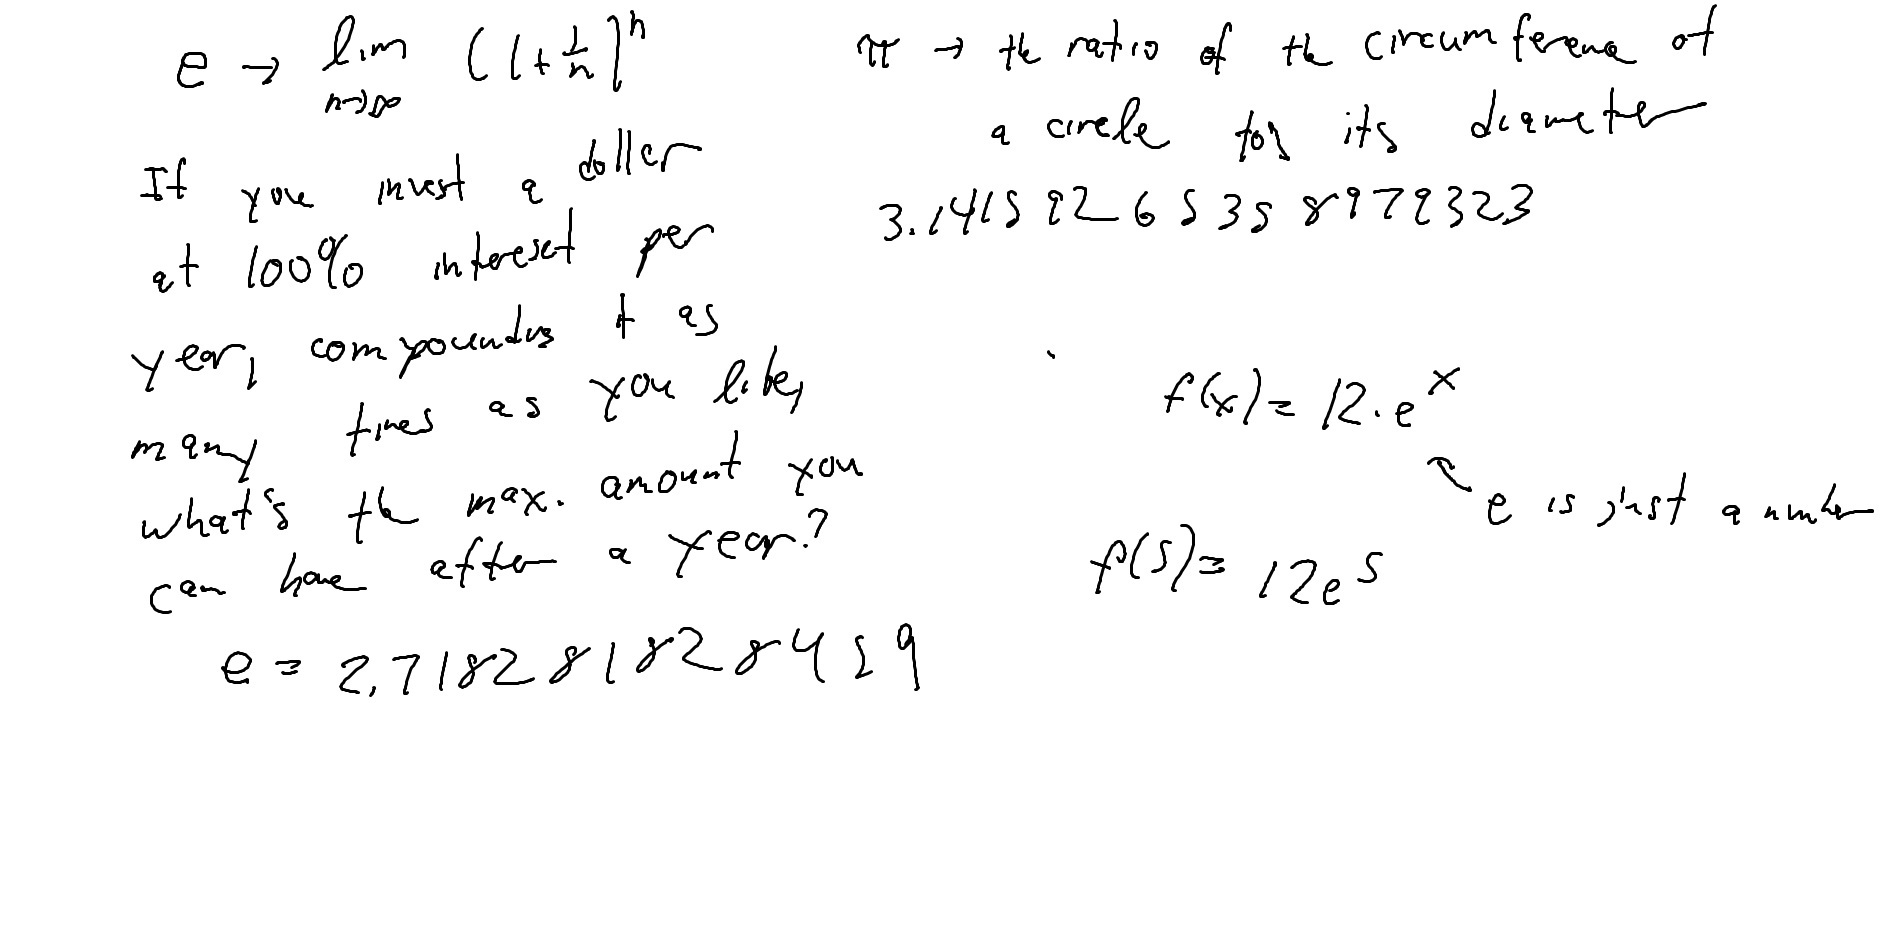 e → lim n→∞ (1+1/n)^n
If you invest a dollar
at 100% interest per
year, compounding it as
many times as you like,
what's the max. amount you
can have after a year?
e = 2.718281828459
π → the ratio of the circumference of
a circle for its diameter
3.14159265358979323
f(x) = 12·e^x
e is just a number
f(5) = 12e^5